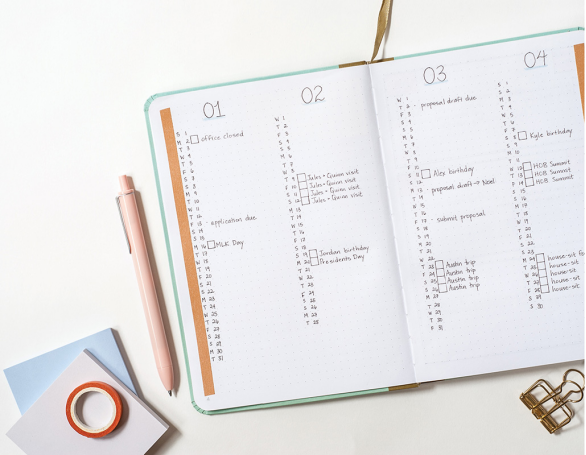 01
S 1
M 2 office closed
T 3
W 4
T 5
F 6
S 7
S 8
M 9
T 10
W 11
T 12
F 13 - application due
S 14
S 15
M 16 MLK Day
T 17
W 18
T 19
F 20
S 21
S 22
M 23
T 24
W 25
T 26
F 27
S 28
S 29
M 30
T 31
02
W 1
T 2
F 3
S 4
S 5
M 6
T 7
W 8
T 9 Jules + Quinn visit
F 10 Jules + Quinn visit
S 11 Jules + Quinn visit
S 12 Jules + Quinn visit
M 13
T 14
W 15
T 16
F 17
S 18
S 19 Jordan birthday
M 20 Presidents Day
T 21
W 22
T 23
F 24
S 25
S 26
M 27
T 28
03
W 1
T 2 - proposal draft due
F 3
S 4
S 5
M 6
T 7
W 8
T 9
F 10
S 11 Alex birthday
S 12
M 13 - proposal draft → Noel
T 14
W 15
T 16
F 17 - submit proposal
S 18
S 19
M 20
T 21
W 22
T 23 Austin trip
F 24 Austin trip
S 25 Austin trip
S 26 Austin trip
M 27
T 28
W 29
T 30
F 31
04
S 1
S 2
M 3
T 4
W 5
T 6
F 7
S 8 Kyle birthday
S 9
M 10
T 11
W 12 HCB Summit
T 13 HCB Summit
F 14 HCB Summit
S 15
S 16
M 17
T 18
W 19
T 20
F 21
S 22
S 23
M 24 house-sit
T 25 house-sit
W 26 house-sit
T 27 house-sit
F 28 house-sit
S 29
S 30